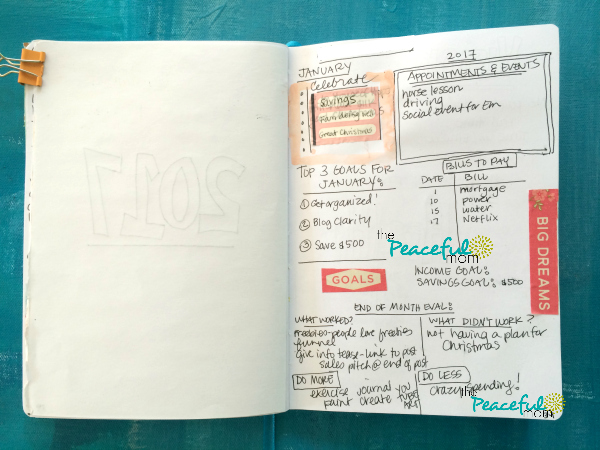 2017
JANUARY
2017
Celebrate
Savings
Great Christmas
APPOINTMENTS & EVENTS
horse lesson
driving
social event for Em
TOP 3 GOALS FOR
JANUARY:
① Get organized!
② Blog Clarity
③ Save $500
BILLS TO PAY
DATE BILL
1 mortgage
10 power
15 water
17 Netflix
the
Peaceful
mom
INCOME GOAL:
SAVINGS GOAL: $500
GOALS
BIG DREAMS
END OF MONTH EVAL:
WHAT WORKED?
freebies-people love freebies
funnel
give info tease - link to post
sales pitch @ end of post
WHAT DIDN'T WORK?
not having a plan for
Christmas
DO MORE
exercise journal
paint create
DO LESS
crazy spending!
the
Peaceful
mom